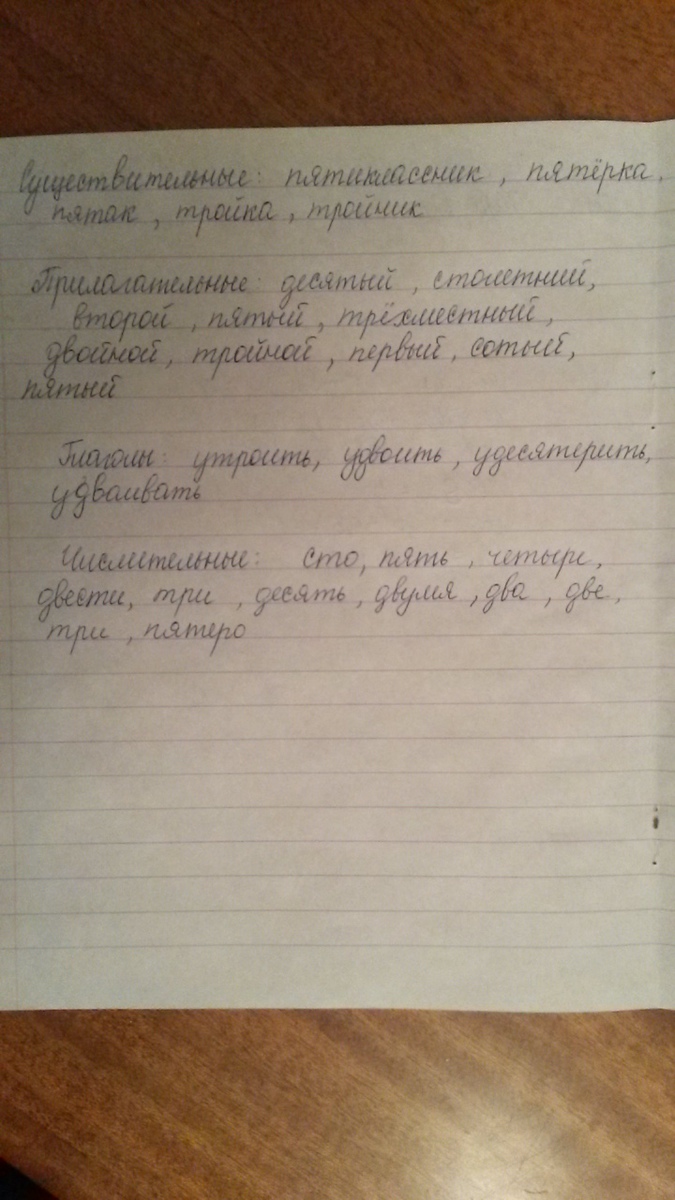 Существительные: пятиклассник, пятёрка,
пятак, тройка, тройник
Прилагательные: десятый, столетний,
второй, пятый, трёхместный,
двойной, тройной, первый, сотый,
пятый
Глаголы: утроить, удвоить, удесятерить,
удваивать
Числительные: сто, пять, четыре,
двести, три, десять, двумя, два, две,
три, пятеро